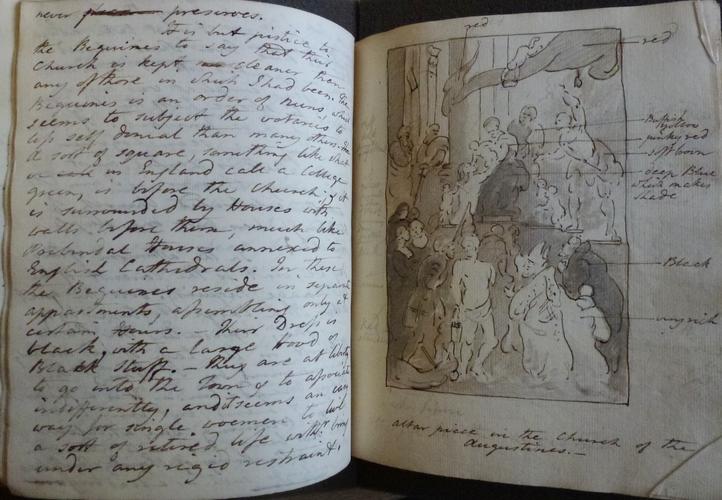 never preserves.
It is but justice to
the Beguines to say that their
Church is kept cleaner than
any of those in which I had been. The
Beguines is an order of nuns which
seems to subject the votaries to
less self denial than many others. In
a sort of square, something like what
we in England call a College
green, is before the Church; it
is surrounded by Houses with
walls before them, much like
Prebendal Houses annexed to
English Cathedrals. In these
the Beguines reside in separate
appartments, assembling only at
certain Hours. — Their Dress is
black, with a large hood of
Black stuff. — They are at liberty
to go into the Town & to associate
indifferently, and it seems an easy
way for single women to live
a sort of retired life witht. being
under any rigid restraint.
red
red
pinky red
soft brown
deep Blue
which makes
shade
Black
very rich
altar piece in the Church of the
Augustines. —